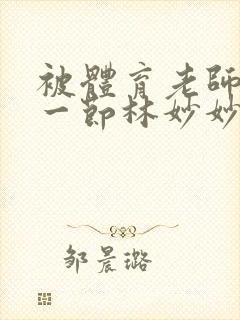 被體育老師
一節林妙妙
邹晨璐